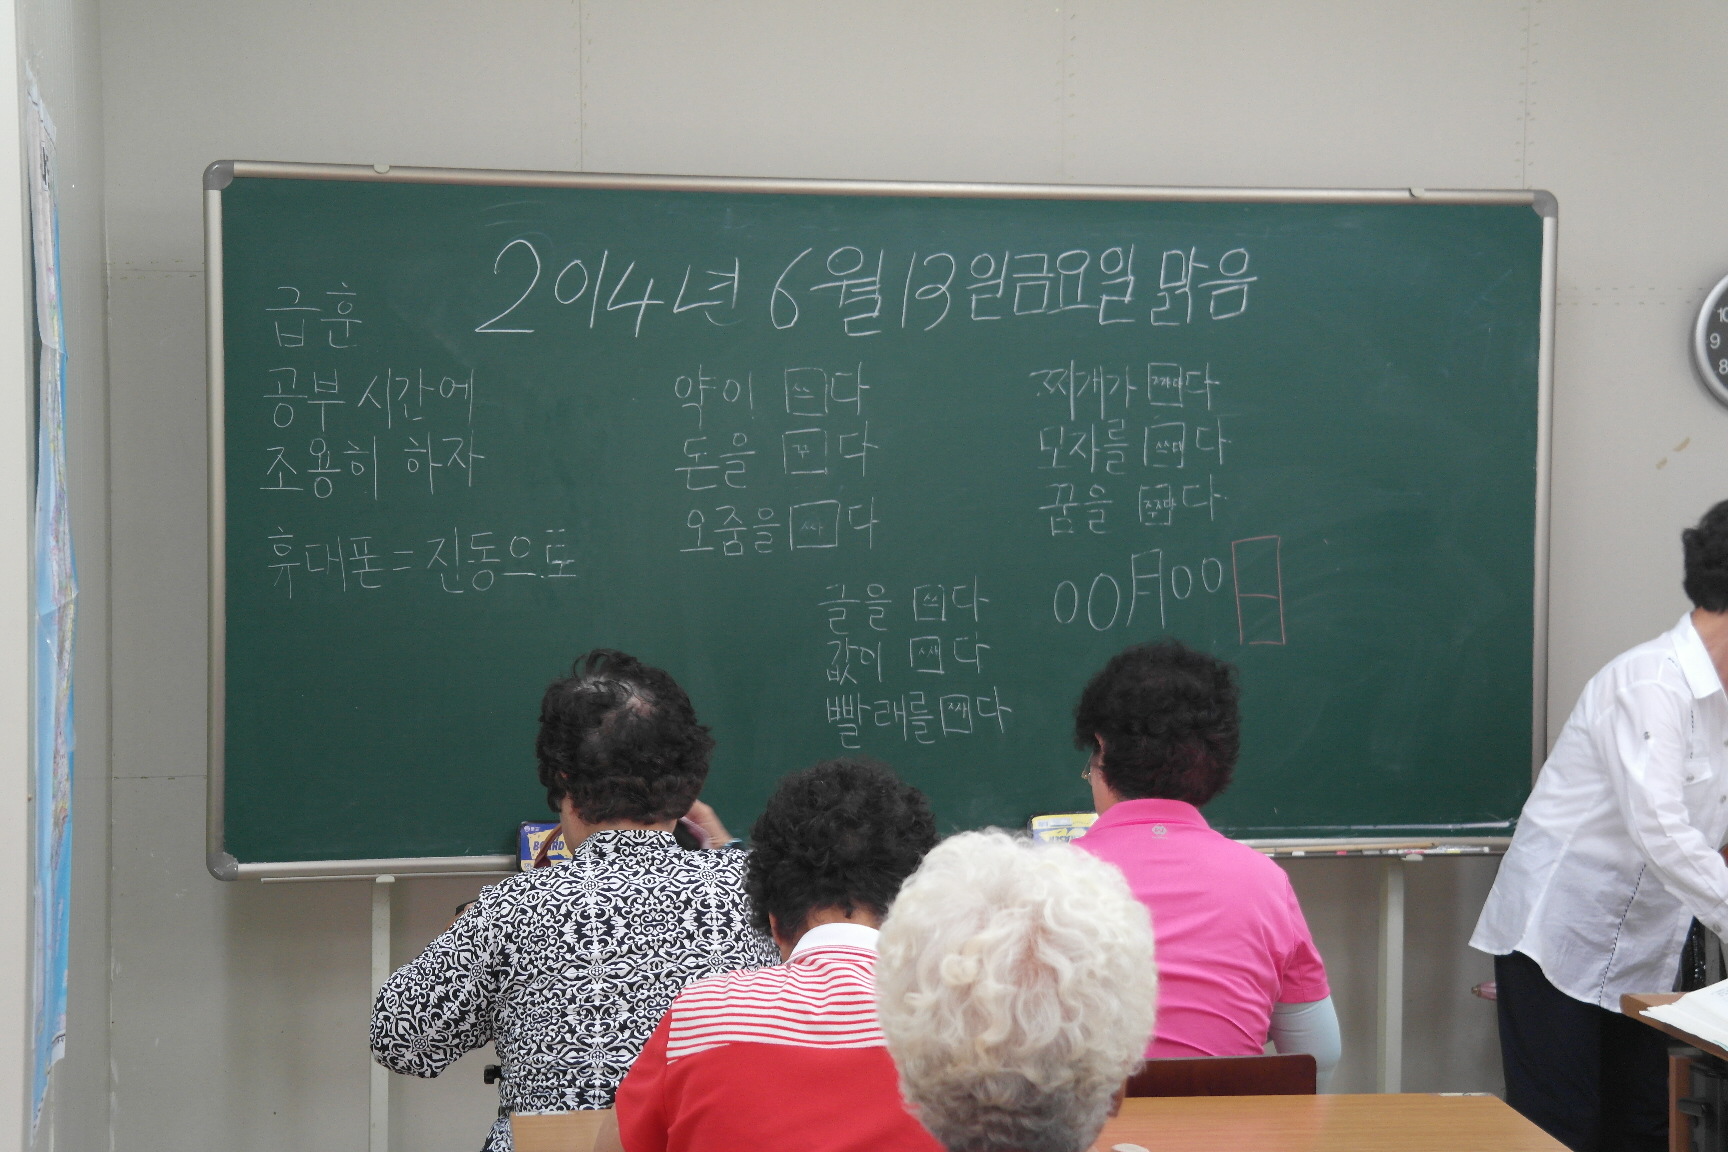 2014년 6월 13일금요일 맑음
급훈
공부 시간에
조용히 하자
휴대폰=진동으로
약이 쓰다
돈을 꾸다
오줌을 싸다
찌개가 짜다
모자를 쓰다
꿈을 다
글을 쓰다
값이 싸다
빨래를 짜다
00月00日
BOARD
10
9
8